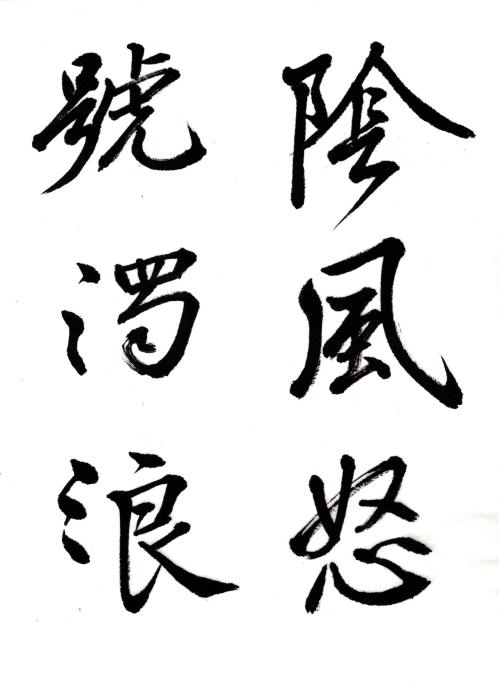 陰風怒
號濁浪